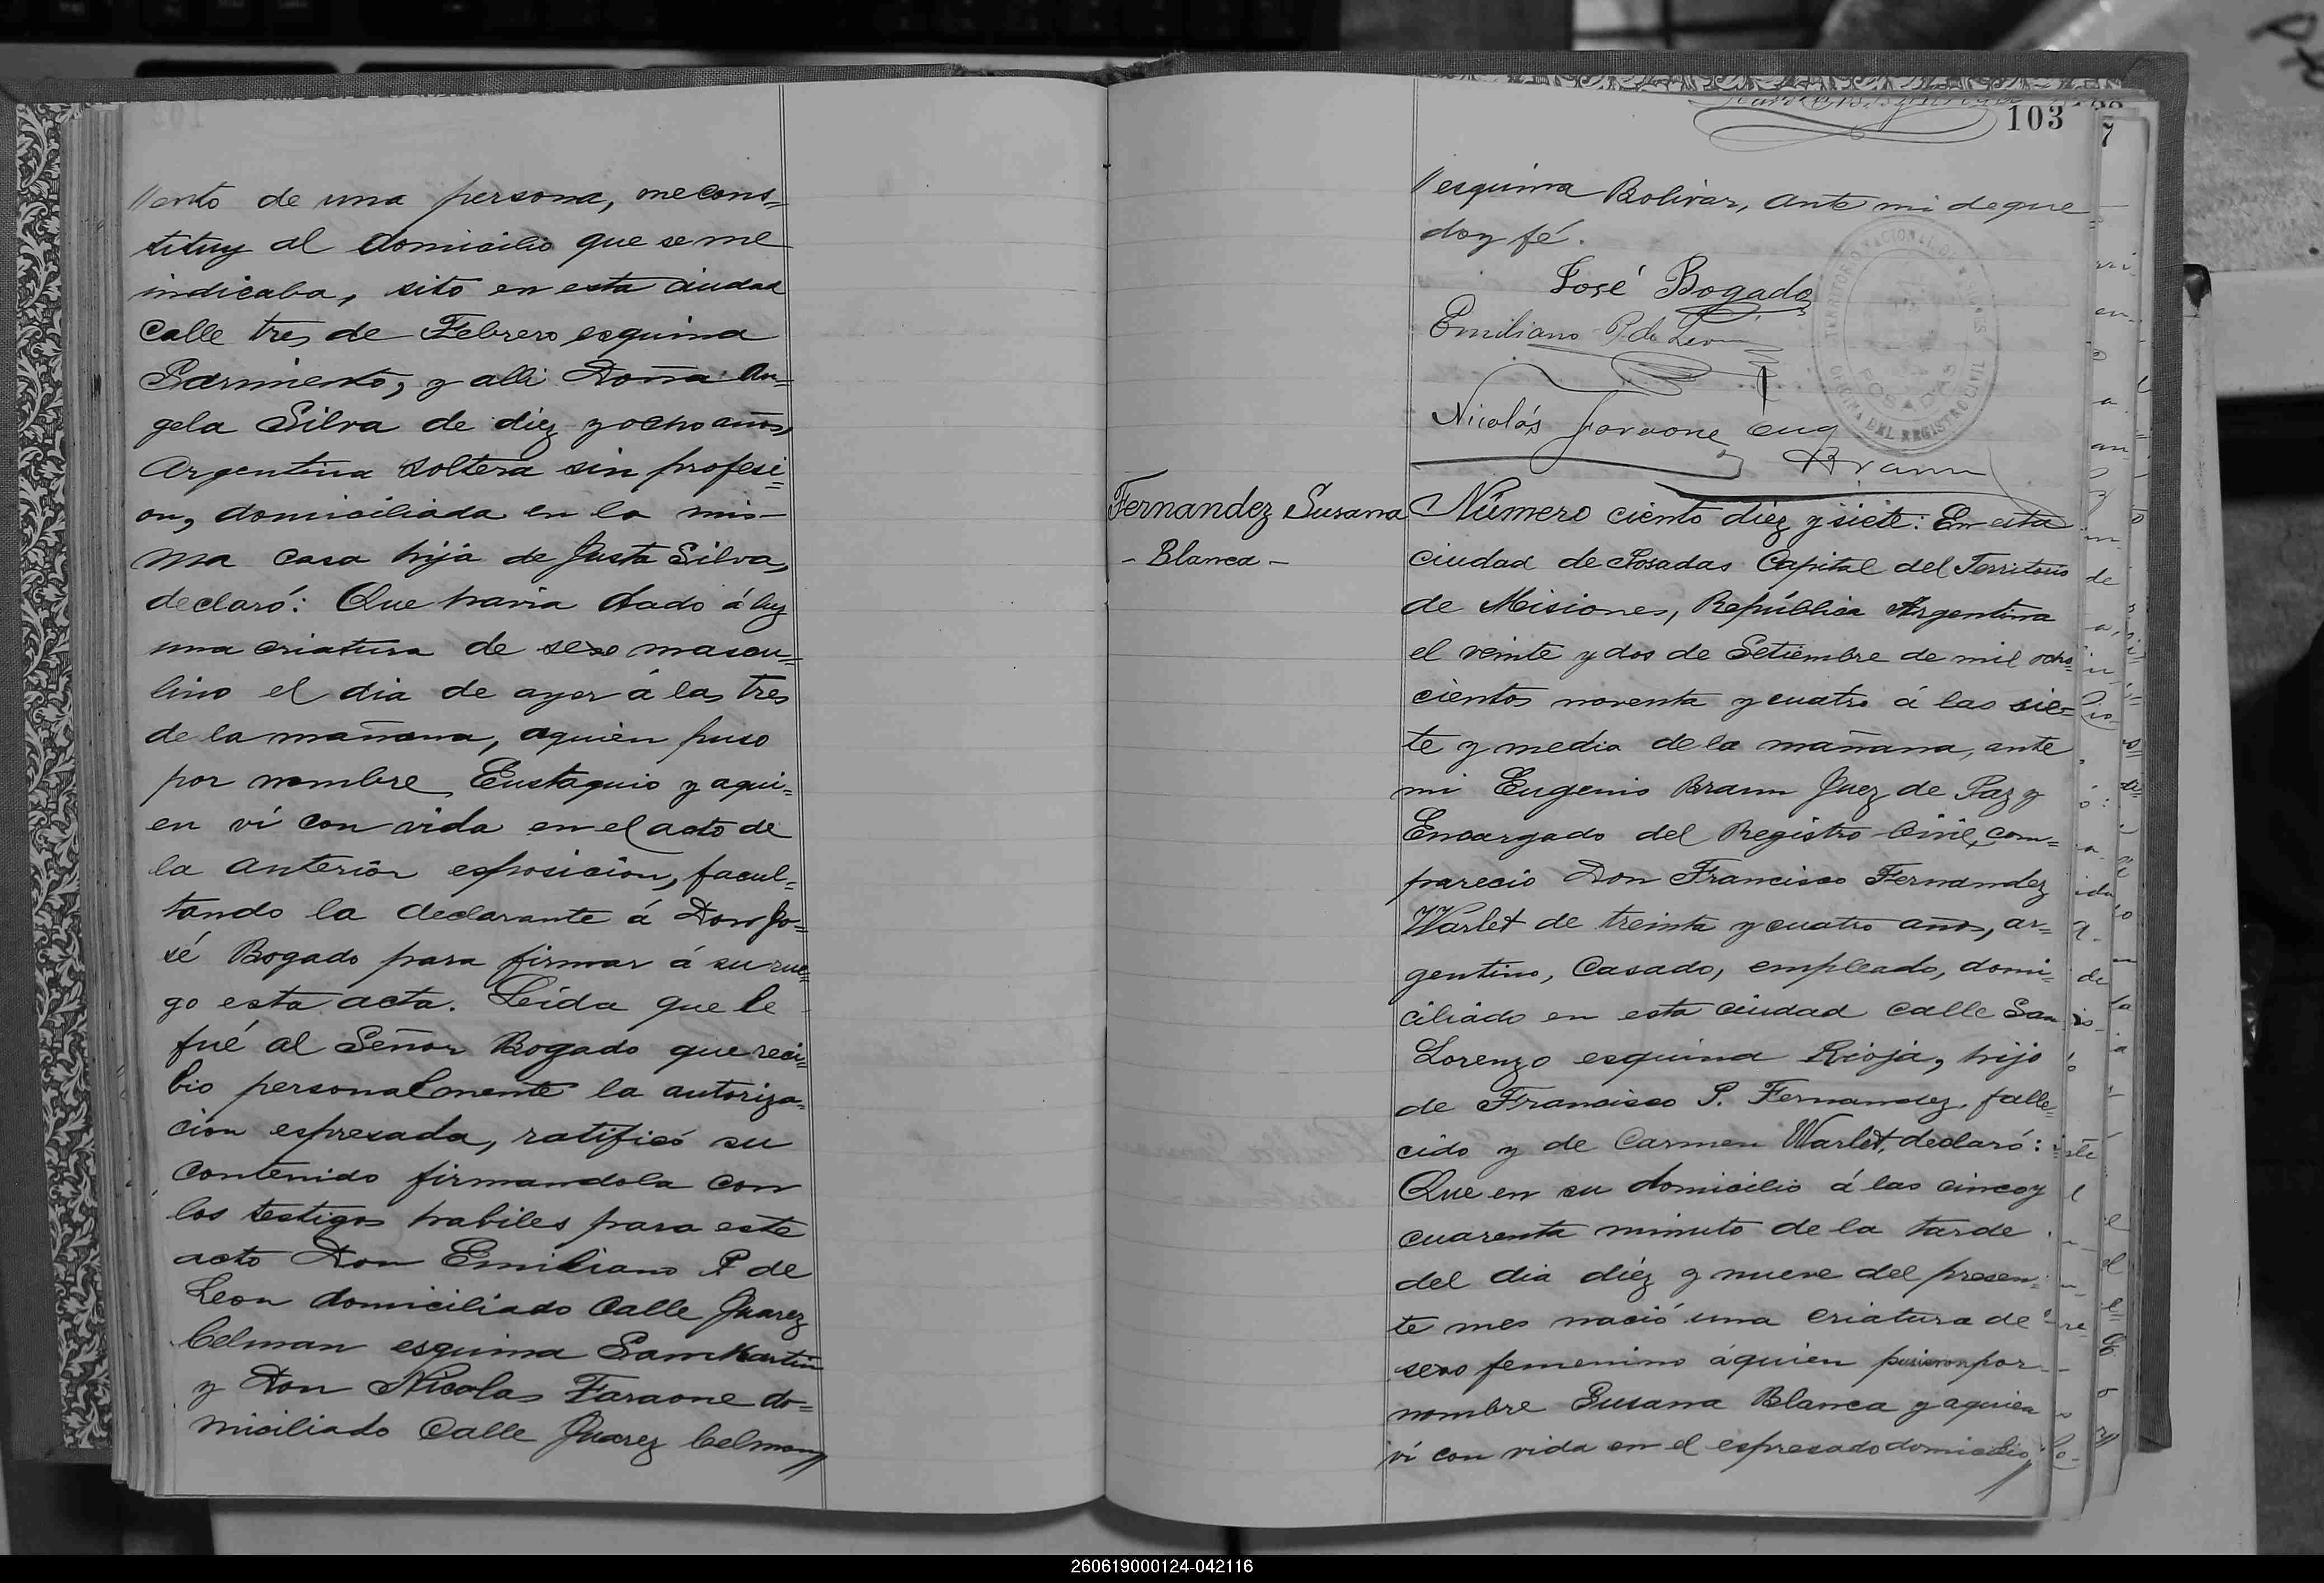 //ento de una persona, me cons=
tituy al domicilio que se me
indicaba, sito en esta ciudad
Calle tres de Febrero esquina
Sarmiento, y alli Doña An=
gela Silva de diez y ocho años,
Argentina soltera sin profesi=
on, domiciliada en la mis-
ma casa hija de Justa Silva,
declaró: Que havia dado á luz
una criatura de sexo mascu=
lino el dia de ayer á las tres
de la mañana, aquien puso
por nombre Eustaquio y aqui=
en ví con vida en el acto de
la anterior esposicion, facul=
tando la declarante á Don Jo=
sé Bogado para firmar á su rue=
go esta acta. Leida que le
fué al Señor Bogado que reci=
bio personalmente la autoriza=
cion espresada, ratificó su
contenido firmandola con
los testigos habiles para este
acto Don Emiliano P de
Leon domiciliado Calle Juarez
Celman esquina San Martin
y Don Nicolas Faraone do=
miciliado Calle Juarez Celman//
103
//esquina Bolivar, ante mi de que
doy fé.
José Bogado
Emiliano P. de Leon
Nicolás Faraone Eug
Brann
TERRITORIO NACIONAL DE MISIONES
POSADAS
OFICINA DEL REGISTRO CIVIL
Fernandez Susana
- Blanca -
Número ciento diez y siete: En esta
ciudad de Posadas Capital del Territorio
de Misiones, República Argentina
el veinte y dos de Setiembre de mil ocho
cientos noventa y cuatro á las sie=
te y media de la mañana, ante
mi Eugenio Brann Juez de Paz y
Encargado del Registro Civil, com=
parecio Don Francisco Fernandez
Warlet de treinta y cuatro años, ar=
gentino, Casado, empleado, domi=
ciliado en esta ciudad calle San
Lorenzo esquina Rioja, hijo
de Francisco P. Fernandez, falle=
cido y de Carmen Warlet, declaró:
Que en su domicilio á las cinco y
cuarenta minuto de la tarde
del dia diéz y nueve del presen=
te mes nació una criatura de
sexo femenino áquien pusieron por
nombre Susana Blanca y aquien
ví con vida en el espresado domicilio,//
260619000124-042116